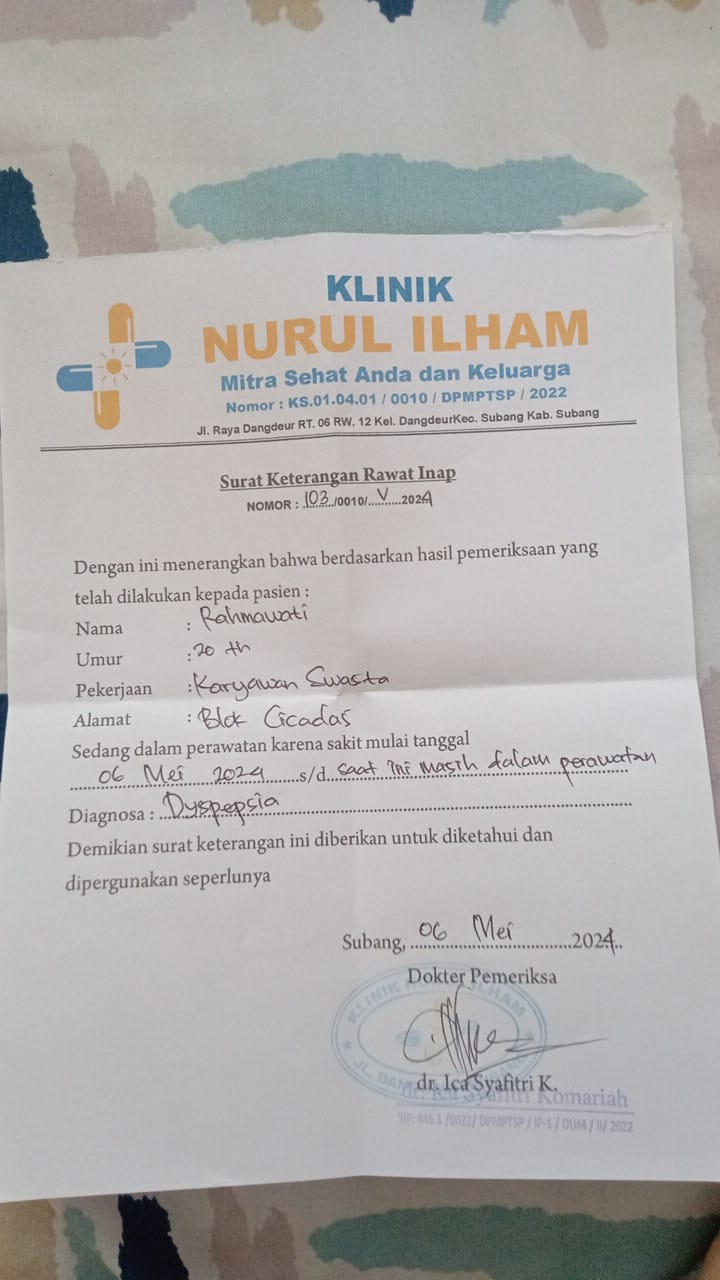 KLINIK
NURUL ILHAM
Mitra Sehat Anda dan Keluarga
Nomor : KS.01.04.01 / 0010 / DPMPTSP / 2022
Jl. Raya Dangdeur RT. 06 RW. 12 Kel. DangdeurKec. Subang Kab. Subang
Surat Keterangan Rawat Inap
NOMOR : 103/0010/ V 2024
Dengan ini menerangkan bahwa berdasarkan hasil pemeriksaan yang
telah dilakukan kepada pasien :
Nama : Rahmawati
Umur : 20 th
Pekerjaan : Karyawan Swasta
Alamat : Blok Cicadas
Sedang dalam perawatan karena sakit mulai tanggal
06 Mei 2024 s/d saat ini masih dalam perawatan
Diagnosa : Dyspepsia
Demikian surat keterangan ini diberikan untuk diketahui dan
dipergunakan seperlunya
Subang, 06 Mei 2024
Dokter Pemeriksa
KLINIK ILHAM
dr. Ica Syafitri K.
dr. Ica Syafitri Komariah